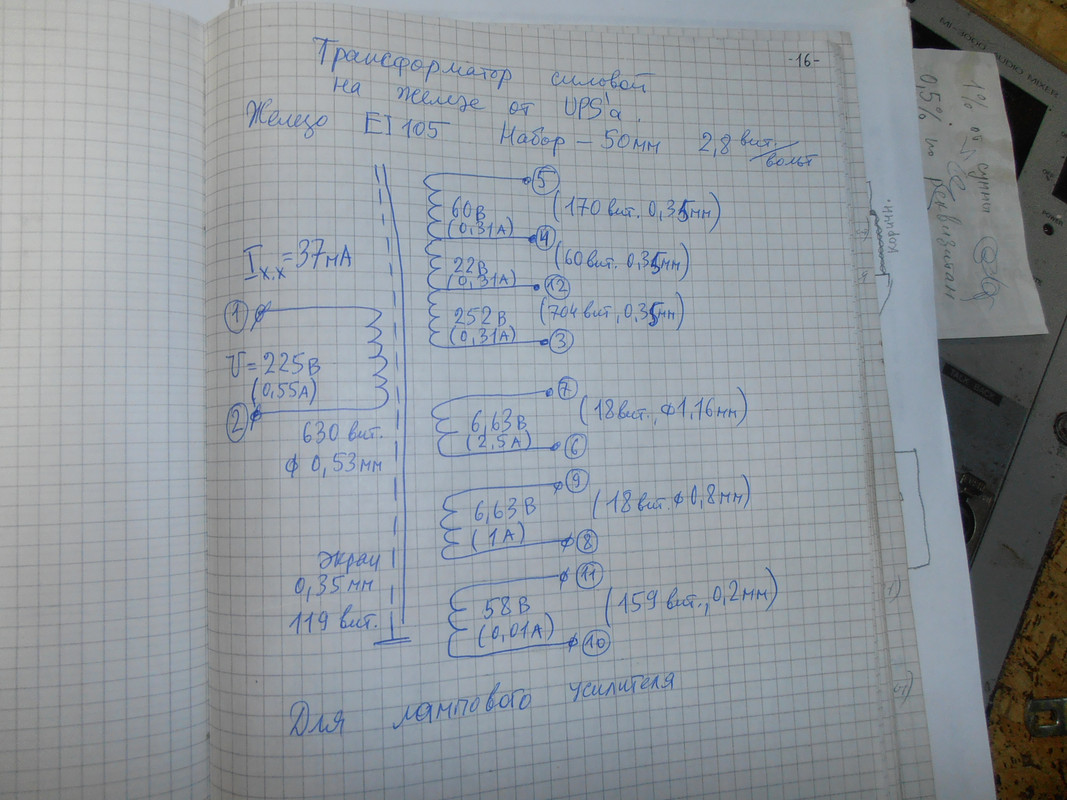 -16-
Трансформатор силовой
на железе от UPS'а.
Железо EI 105 Набор – 50мм 2,8 вит./вольт
5
60В (170 вит. 0,35мм)
(0,31А)
4
Iх.х = 37мА
22В (60 вит. 0,35мм)
(0,31А)
12
1
252В (704 вит, 0,35мм)
(0,31А)
3
U = 225В
(0,55А)
2
630 вит.
ϕ 0,53мм
7
6,63В (18 вит., ϕ1,16мм)
(2,5А)
6
9
6,63В (18 вит. ϕ0,8мм)
(1А)
8
экран
0,35мм
119 вит.
11
58В (159 вит., 0,2мм)
(0,01А)
10
Для лампового усилителя
1% от суммы
0,5% по
коричн.